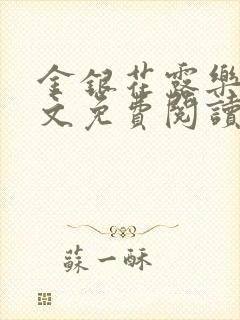 金銀花露樂
文免費閱讀
蘇一酥